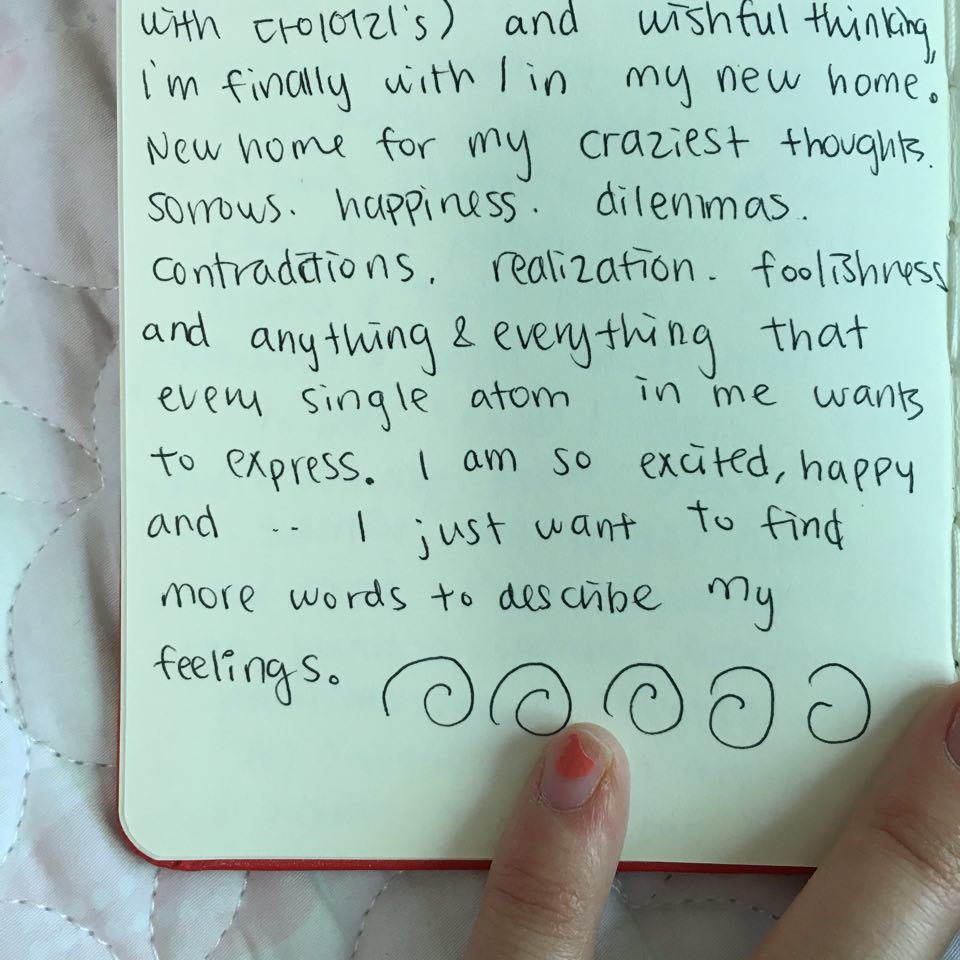 with 다이어리's) and wishful thinking,
I'm finally with / in my new home.
New home for my craziest thoughts.
sorrows. happiness. dilemmas.
contradictions. realization. foolishness
and anything & everything that
every single atom in me wants
to express. I am so excited, happy
and .. I just want to find
more words to describe my
feelings.